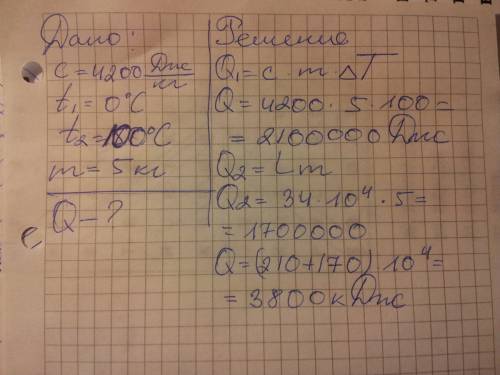 Дано:
c=4200 Дж/кг
t₁=0°C
t₂=100°C
m=5кг
Q-?
Решение
Q₁=c·m·ΔT
Q=4200·5·100=
=2100000 Дж
Q₂=Lm
Q₂=34·10⁴·5=
=1700000
Q=(210+170)10⁴=
=3800кДж